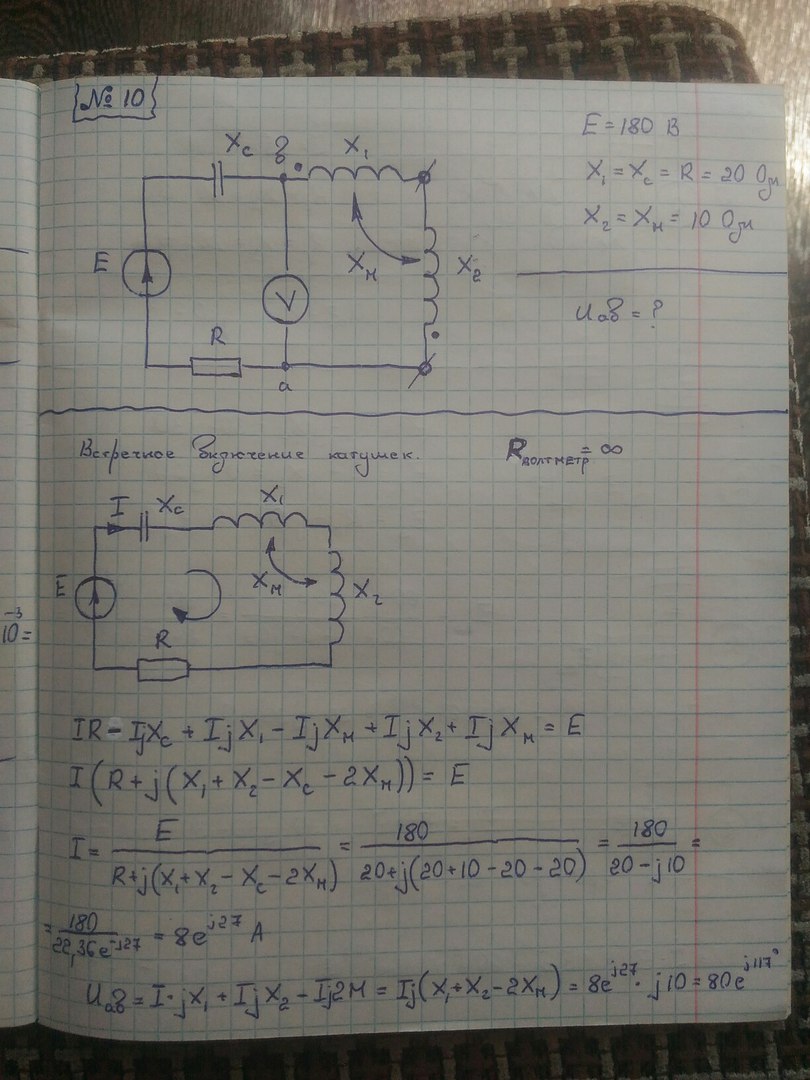 № 10
E = 180 В
X₁ = X_c = R = 20 Ом
X₂ = X_м = 10 Ом
U_ав = ?
X_c в X₁
E X_м X₂
V
R
а
Встречное включение катушек. R_вольтметр = ∞
I X_c X₁
E X_м X₂
R
-3
10 =
IR - IjX_c + IjX₁ - IjX_м + IjX₂ + IjX_м = E
I(R + j(X₁ + X₂ - X_c - 2X_м)) = E
I = E / (R + j(X₁ + X₂ - X_c - 2X_м)) = 180 / (20 + j(20 + 10 - 20 - 20)) = 180 / (20 - j10) =
= 180 / (22,36e^(-j27)) = 8e^(j27) А
U_ав = I·jX₁ + IjX₂ - Ij2М = Ij(X₁ + X₂ - 2X_м) = 8e^(j27) · j10 = 80e^(j117°)